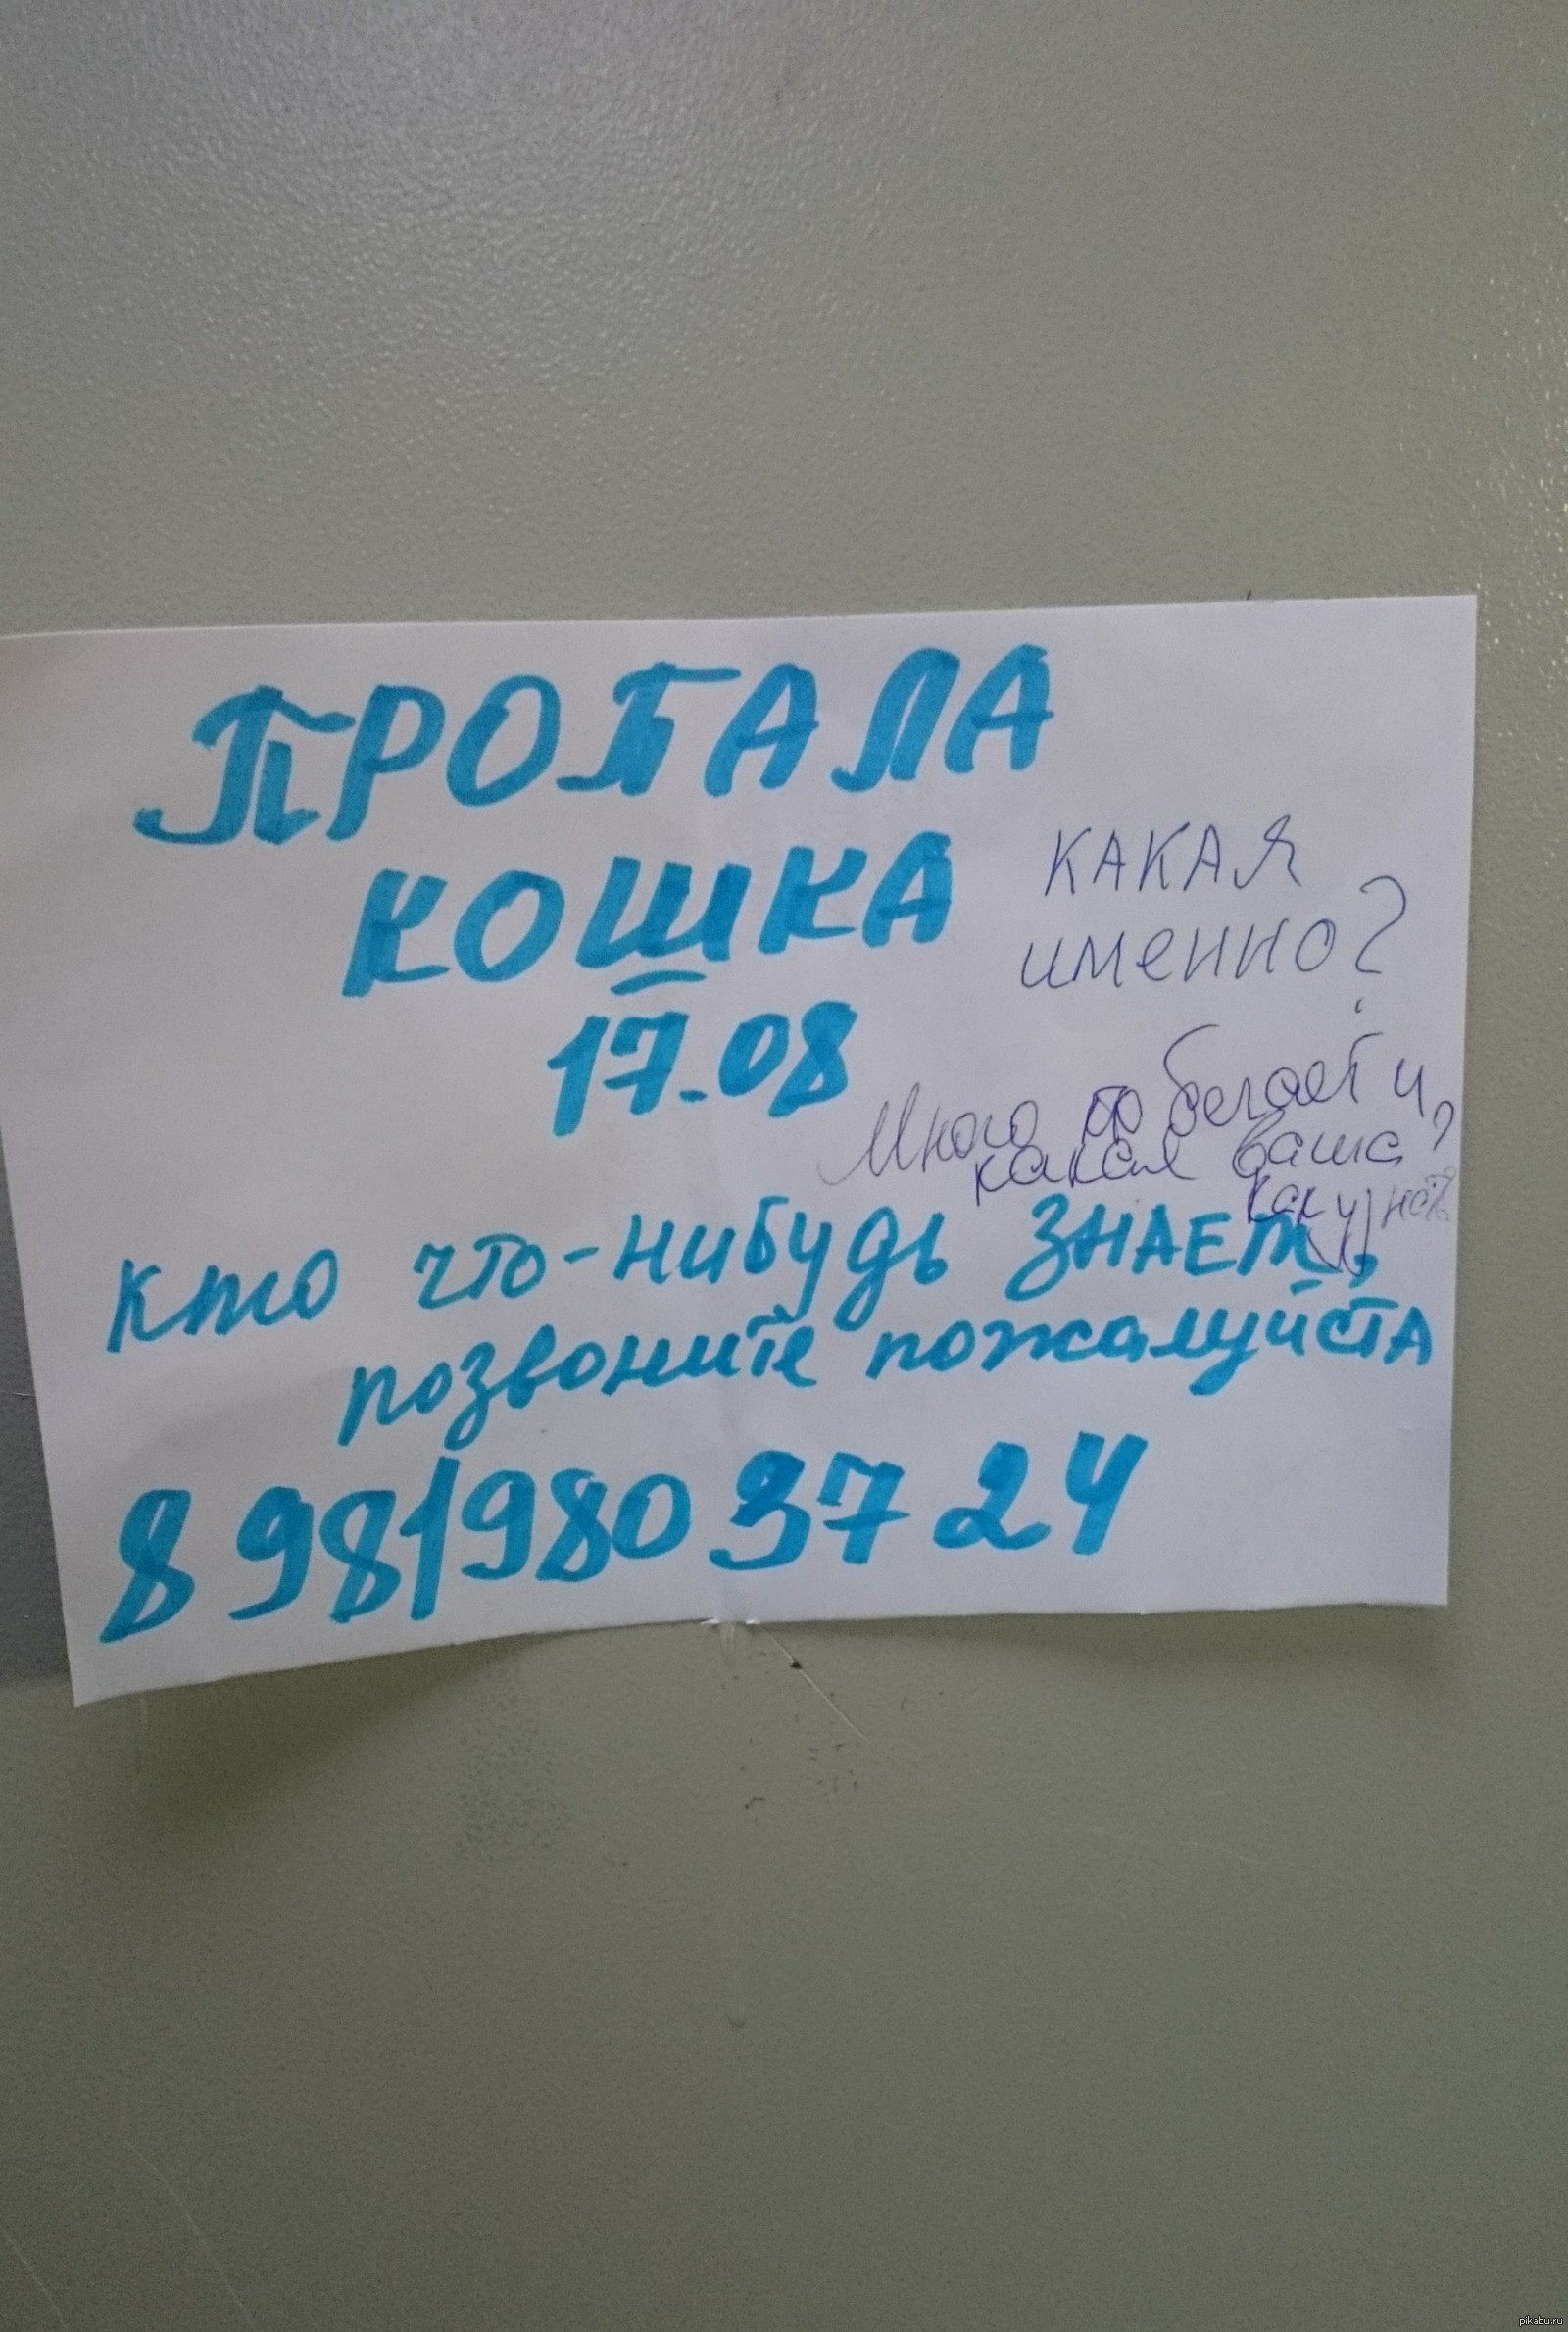 ПРОПАЛА
КОШКА
17.08
КАКАЯ
именно?
Много бегает и
какая ваша?
как узнать
кто что-нибудь ЗНАЕТ,
позвоните пожалуйста
8 981 980 37 24
pikabu.ru